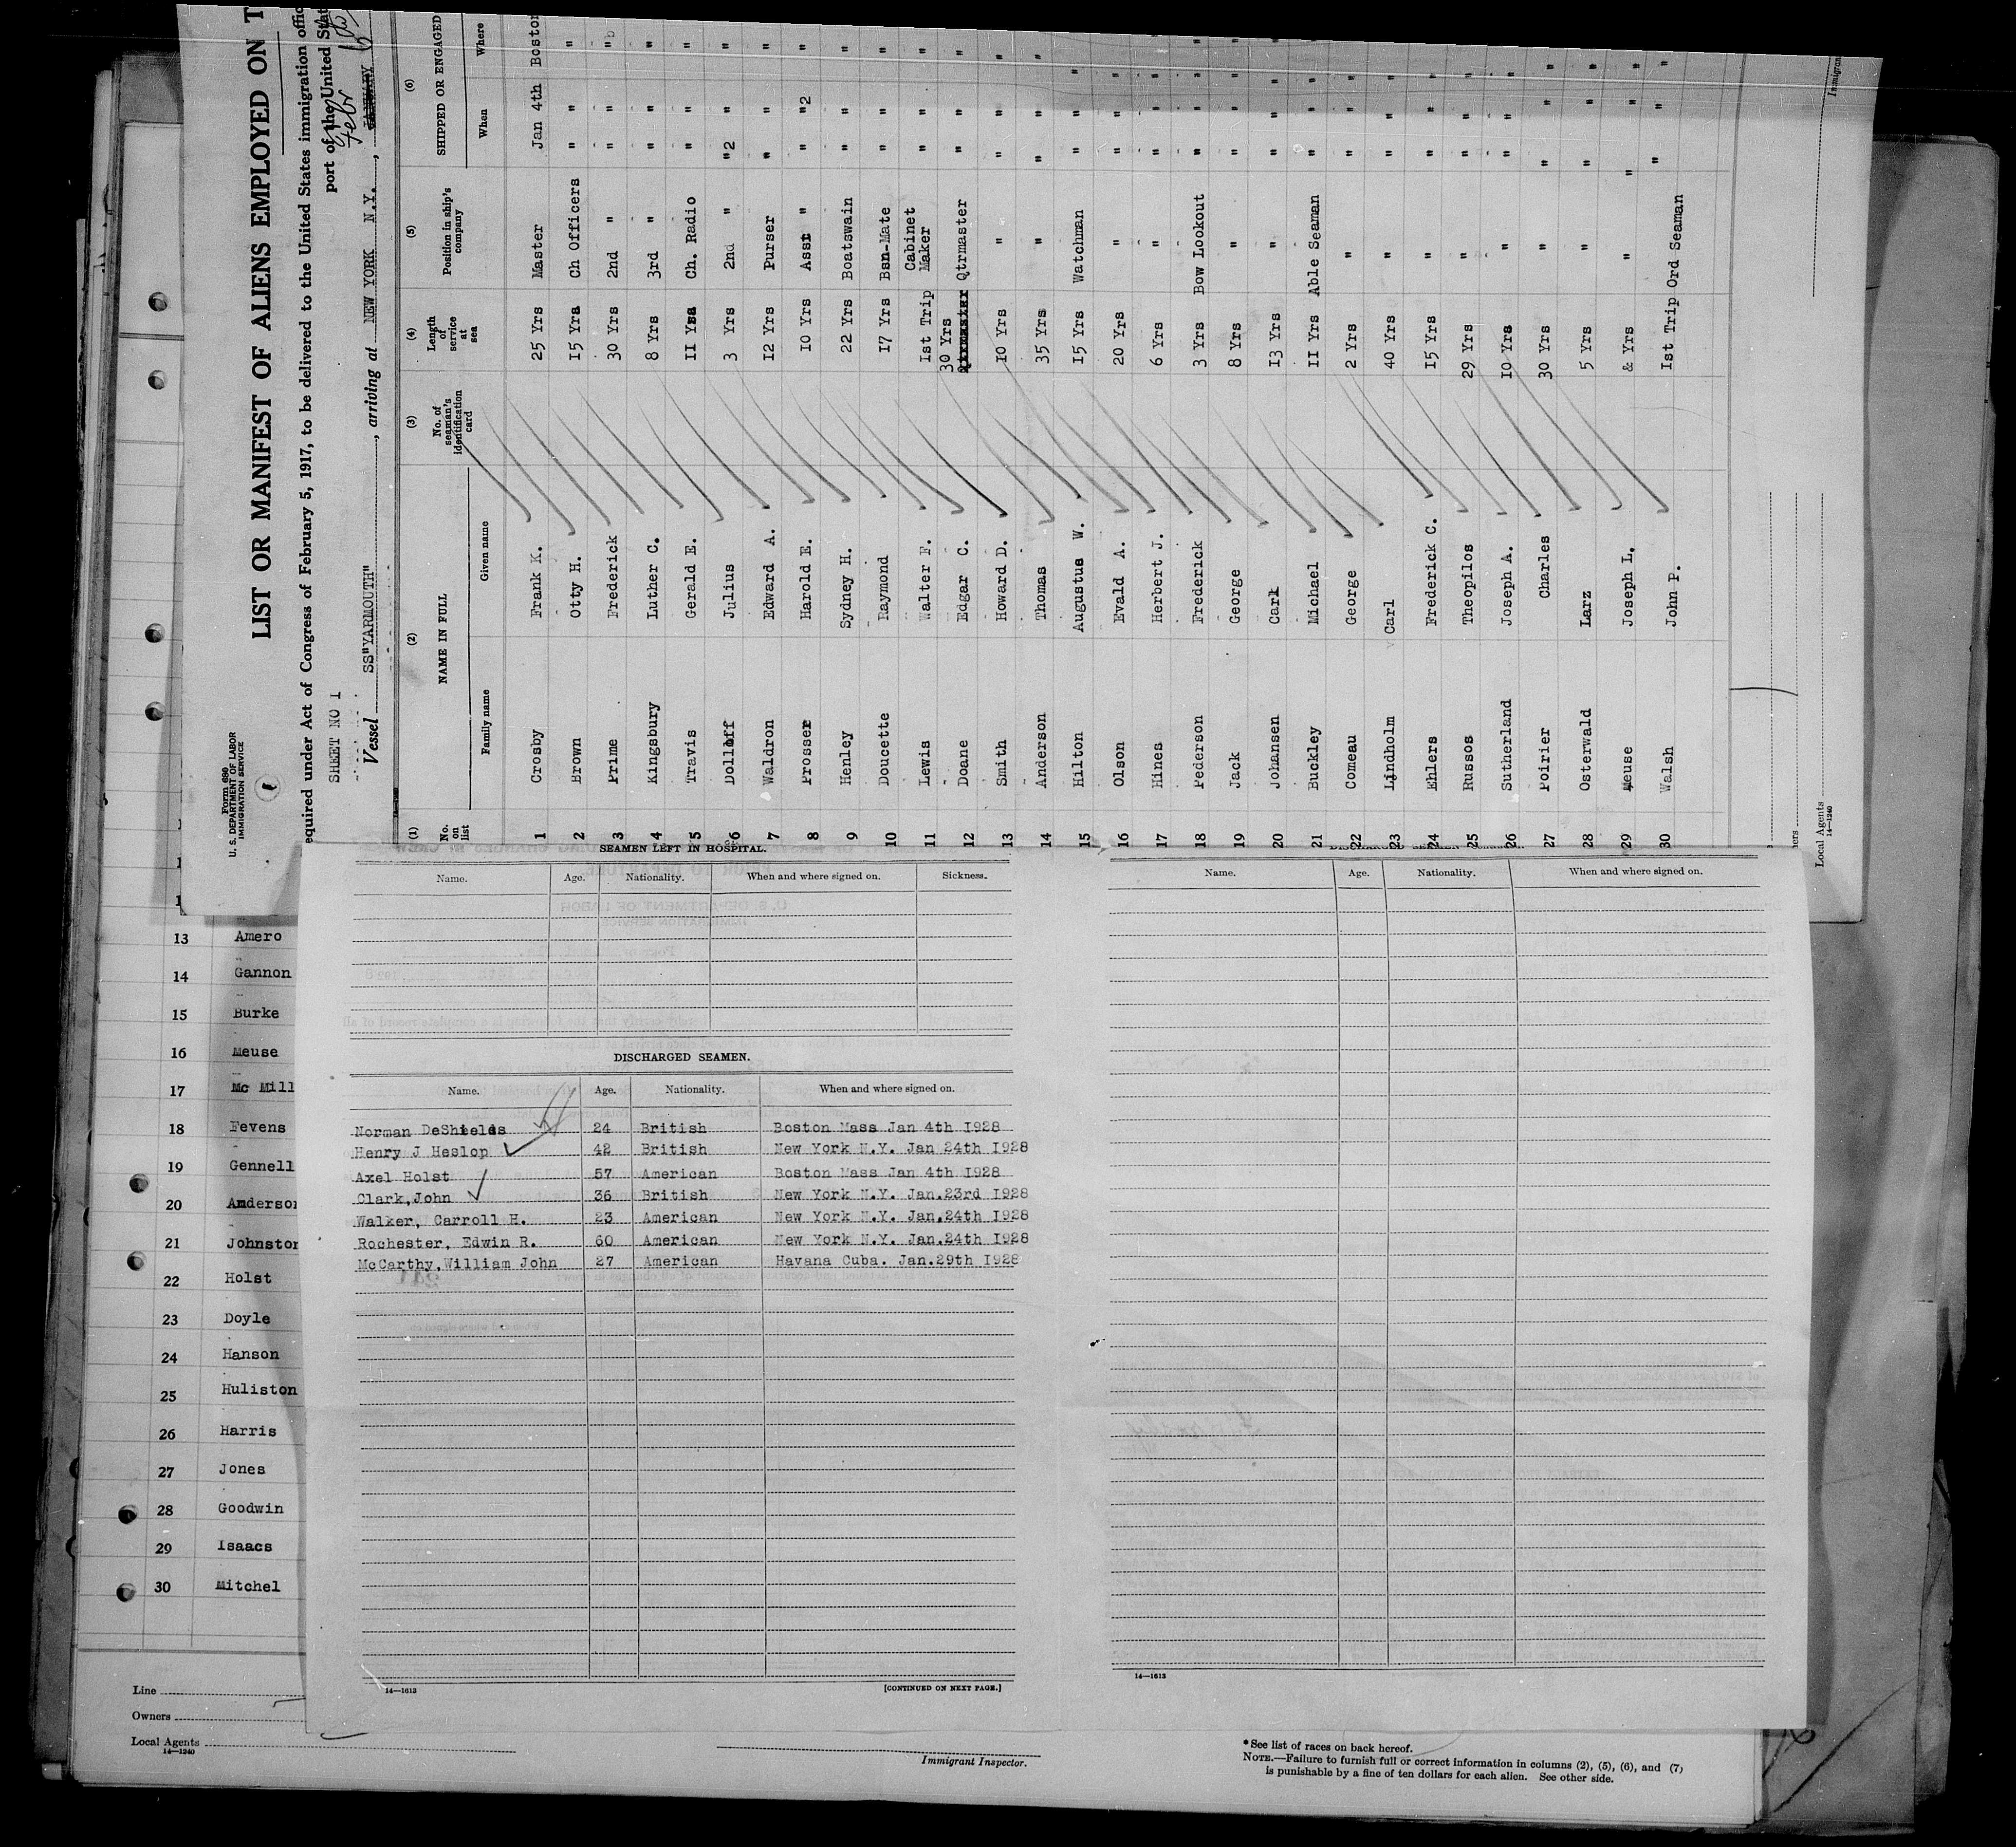 Form 680
U. S. DEPARTMENT OF LABOR
IMMIGRATION SERVICE
LIST OR MANIFEST OF ALIENS EMPLOYED ON T
equired under Act of Congress of February 5, 1917, to be delivered to the United States immigration offic
port of the United Stat
SHEET NO I
Vessel SS"YARMOUTH", arriving at NEW YORK N.Y., Febr
(1) (2) (3) (4) (5) (6)
No. on list NAME IN FULL No. of seaman's identification card Length of service at sea Position in ship's company SHIPPED OR ENGAGED
Family name Given name When Where
1 Crosby Frank K. 25 Yrs Master Jan 4th Boston
2 Brown Otty H. I5 Yrs Ch Officers " " "
3 Prime Frederick 30 Yrs 2nd " " " "
4 Kingsbury Luther C. 8 Yrs 3rd " " " "
5 Travis Gerald E. II Yrs Ch. Radio " " "
6 Dolloff Julius 3 Yrs 2nd " "2 " "
7 Waldron Edward A. I2 Yrs Purser " " "
8 Prosser Harold E. IO Yrs Asst " " "2 "
9 Henley Sydney H. 22 Yrs Boatswain " " "
10 Doucette Raymond I7 Yrs Bsn-Mate " " "
11 Lewis Walter F. Ist Trip Cabinet Maker " " "
12 Doane Edgar C. 30 Yrs Qtrmaster " " "
13 Smith Howard D. IO Yrs " " " "
14 Anderson Thomas 35 Yrs " " " "
15 Hilton Augustus W. I5 Yrs Watchman " " "
16 Olson Evald A. 20 Yrs " " " "
17 Hines Herbert J. 6 Yrs " " " "
18 Pederson Frederick 3 Yrs Bow Lookout " " "
19 Jack George 8 Yrs " " " "
20 Johansen Carl I3 Yrs " " " "
21 Buckley Michael II Yrs Able Seaman " " "
22 Comeau George 2 Yrs " " " "
23 Lindholm Carl 40 Yrs " " " "
24 Ehlers Frederick C. I5 Yrs " " " "
25 Russos Theopilos 29 Yrs " " " "
26 Sutherland Joseph A. IO Yrs " " " "
27 Poirier Charles 30 Yrs " " " "
28 Osterwald Larz 5 Yrs " " " "
29 Meuse Joseph L. & Yrs " " " "
30 Walsh John P. Ist Trip Ord Seaman " " "
Local Agents
14—1240
Immigran
SEAMEN LEFT IN HOSPITAL.
Name. Age. Nationality. When and where signed on. Sickness.
DISCHARGED SEAMEN.
Name. Age. Nationality. When and where signed on.
Norman DeShields 24 British Boston Mass Jan 4th I928
Henry J Heslop 42 British New York N.Y. Jan 24th I928
Axel Holst 57 American Boston Mass Jan 4th I928
Clark,John 36 British New York N.Y. Jan.23rd I928
Walker, Carroll H. 23 American New York N.Y. Jan.24th I928
Rochester, Edwin R. 60 American New York N.Y. Jan.24th I928
McCarthy,William John 27 American Havana Cuba. Jan.29th I928
14—1613
[CONTINUED ON NEXT PAGE.]
Name. Age. Nationality. When and where signed on.
14—1613
13 Amero
14 Gannon
15 Burke
16 Meuse
17 Mc Mill
18 Fevens
19 Gennell
20 Anderson
21 Johnston
22 Holst
23 Doyle
24 Hanson
25 Huliston
26 Harris
27 Jones
28 Goodwin
29 Isaacs
30 Mitchel
Line
Owners
Local Agents
14—1240
Immigrant Inspector.
*See list of races on back hereof.
NOTE.—Failure to furnish full or correct information in columns (2), (5), (6), and (7)
is punishable by a fine of ten dollars for each alien. See other side.